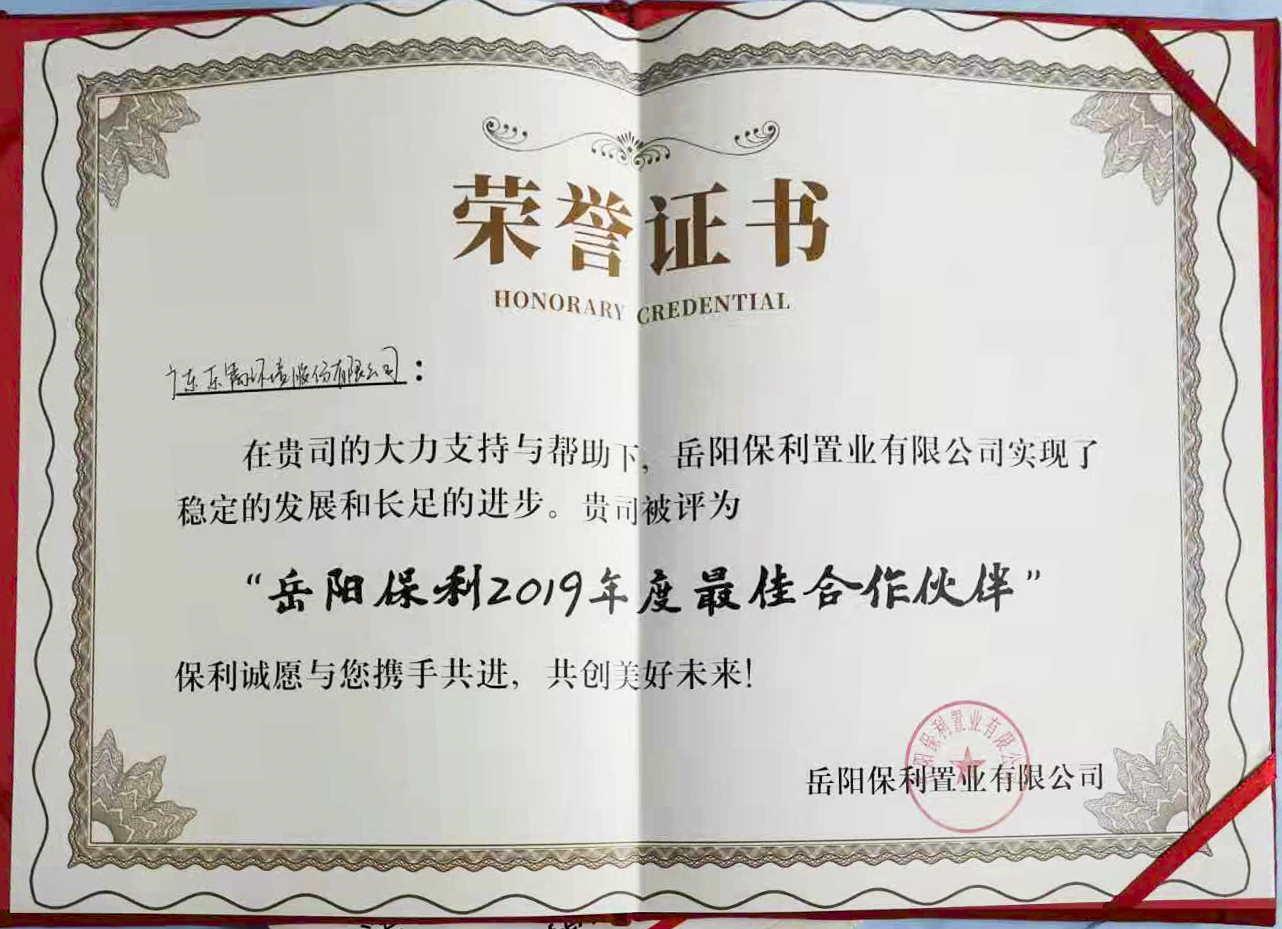 荣誉证书
HONORARY CREDENTIAL
广东东篱环境股份有限公司：
在贵司的大力支持与帮助下，岳阳保利置业有限公司实现了
稳定的发展和长足的进步。贵司被评为
“岳阳保利2019年度最佳合作伙伴”
保利诚愿与您携手共进，共创美好未来！
岳阳保利置业有限公司
岳阳保利置业有限公司